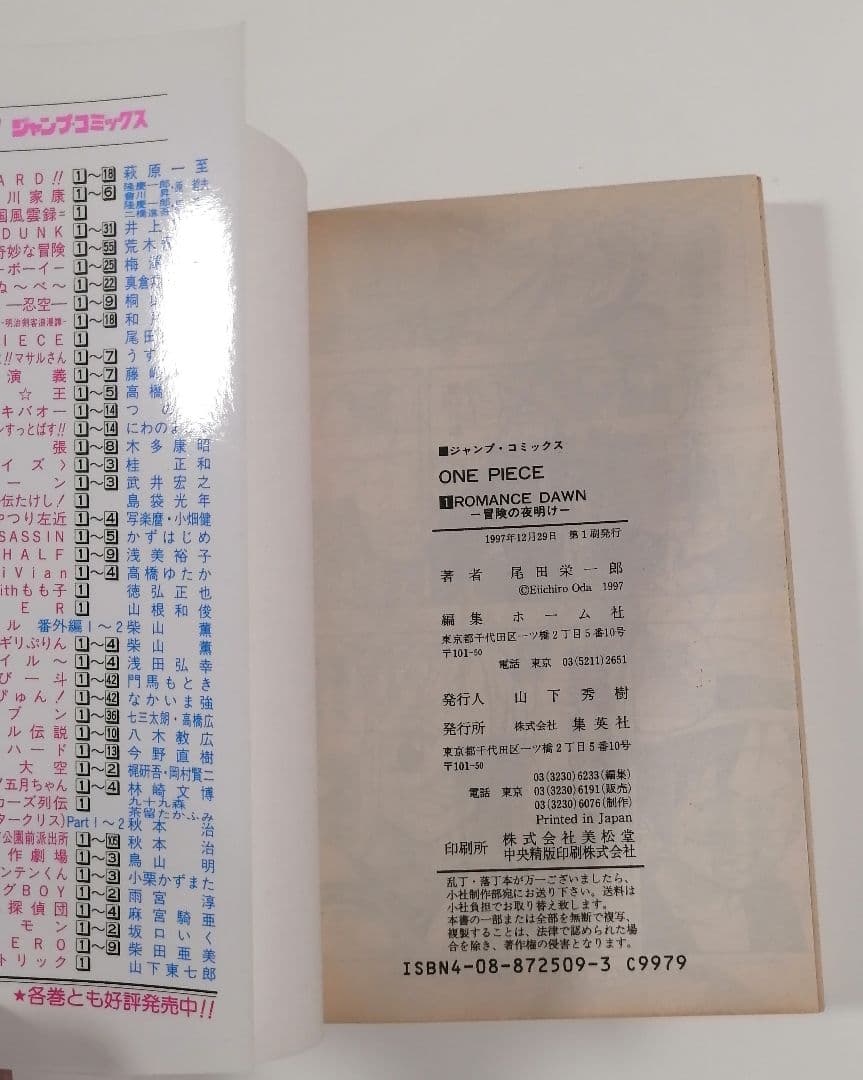 ジャンプ・コミックス
ARD!! 1～18 萩原一至
川家康 1～6 隆慶一郎・原哲夫 會川昇
国風雲録= 1 隆慶一郎 二橋進
DUNK 1～31 井上
奇妙な冒険 1～55 荒木
ーボーイー 1～25 梅澤
ぬ～べ～ 1～22 真倉
―忍空― 1～9 桐山
-明治剣客浪漫譚- 1～18 和月
IECE 1 尾田
!!マサルさん 1～7 うすた
演義 1～7 藤崎
☆王 1～5 高橋
キバオー 1～14 つの
ンすっとばす!! 1～14 にわのま
張 1～8 木多康昭
イズ〉 1～3 桂正和
ーン 1～3 武井宏之
伝たけし! 1 島袋光年
やつり左近 1～4 写楽麿・小畑健
SASSIN 1～5 かずはじめ
HALF 1～9 浅美裕子
iVian 1～4 高橋ゆたか
ithもも子 1 徳弘正也
ER 1 山根和俊
ル 番外編1～2 柴山薫
ギリぷりん 1～4 柴山薫
イル～ 1～4 浅田弘幸
び一斗 1～42 門馬もとき
びゅん! 1～42 なかいま強
ブン 1～36 七三太朗・高橋広
ル伝説 1～10 八木教広
ハード 1～13 今野直樹
大空 1～2 梶研吾・岡村賢二
ブ五月ちゃん 1～4 林崎文博
カーズ列伝 1 九十九森 茶留たかふみ
タークリス)Part1～2 秋本治
公園前派出所 1～105 秋本治
作劇場 1～3 鳥山明
ンテンくん 1～3 小栗かずまた
グBOY 1～2 雨宮淳
探偵団 1～4 麻宮騎亜
モン 1～2 坂口いく
ERO 1～9 柴田亜美
トリック 1 山下東七郎
★各巻とも好評発売中!!
■ジャンプ・コミックス
ONE PIECE
1 ROMANCE DAWN
―冒険の夜明け―
1997年12月29日 第1刷発行
著者 尾田栄一郎
©Eiichiro Oda 1997
編集 ホーム社
東京都千代田区一ツ橋2丁目5番10号
〒101-50
電話 東京 03(5211)2651
発行人 山下秀樹
発行所 株式会社 集英社
東京都千代田区一ツ橋2丁目5番10号
〒101-50
03(3230)6233(編集)
電話 東京 03(3230)6191(販売)
03(3230)6076(制作)
Printed in Japan
印刷所 株式会社美松堂
中央精版印刷株式会社
乱丁・落丁本が万一ございましたら、
小社制作部宛にお送り下さい。送料は
小社負担でお取り替え致します。
本書の一部または全部を無断で複写、
複製することは、法律で認められた場
合を除き、著作権の侵害となります。
ISBN4-08-872509-3 C9979